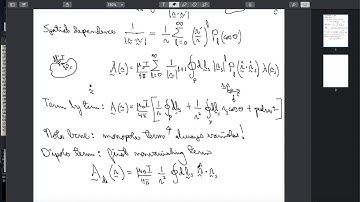 Spatial dependence 1/|r-r'| = 1/r ∑_{l=0}^{∞} (r_s/r)^l P_l(cosθ)
A(r) = μ₀I/4π ∑_{l=0}^{∞} 1/|r|^{l+1} ∮ dl_s |r_s|^l P_l(r̂·r̂_s)
Term by term: A(r) = μ₀I/4π [1/r ∮ dl_s + 1/r² ∮ dl_s r_s cosθ + quadr.]
Note here: monopole term always vanishes!
Dipole term: first nonvanishing term
A_di(r) = μ₀I/4π 1/r² ∮ dl_s r̂·r_s